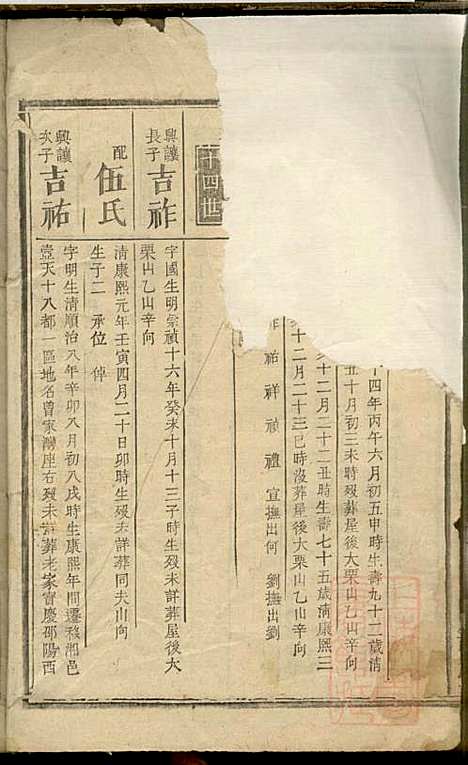 十四年丙午六月初五申時生壽九十二歲清
丑十月初三未時歿葬屋後大栗山乙山
十二月二十二丑時生壽七十五歲清康熙三
十二月二十三巳時沒葬屋後大栗山乙山辛向
祚 祐 祥 禎 禮 宣撫出何 劉撫出劉
十四世
興讓長子 吉祚
字國生明崇禎十六年癸未十月十三子時生歿未詳葬屋後大
栗山乙山辛向
配 伍氏
清康熙元年壬寅四月二十日卯時生歿未詳葬同夫山向
生子二 承位 倬
興讓次子 吉祐
字明生清順治八年辛卯八月初八戌時生康熙年間遷移湘邑
壺天十八都一區地名曾家灣座右歿未詳葬老家寶慶邵陽西